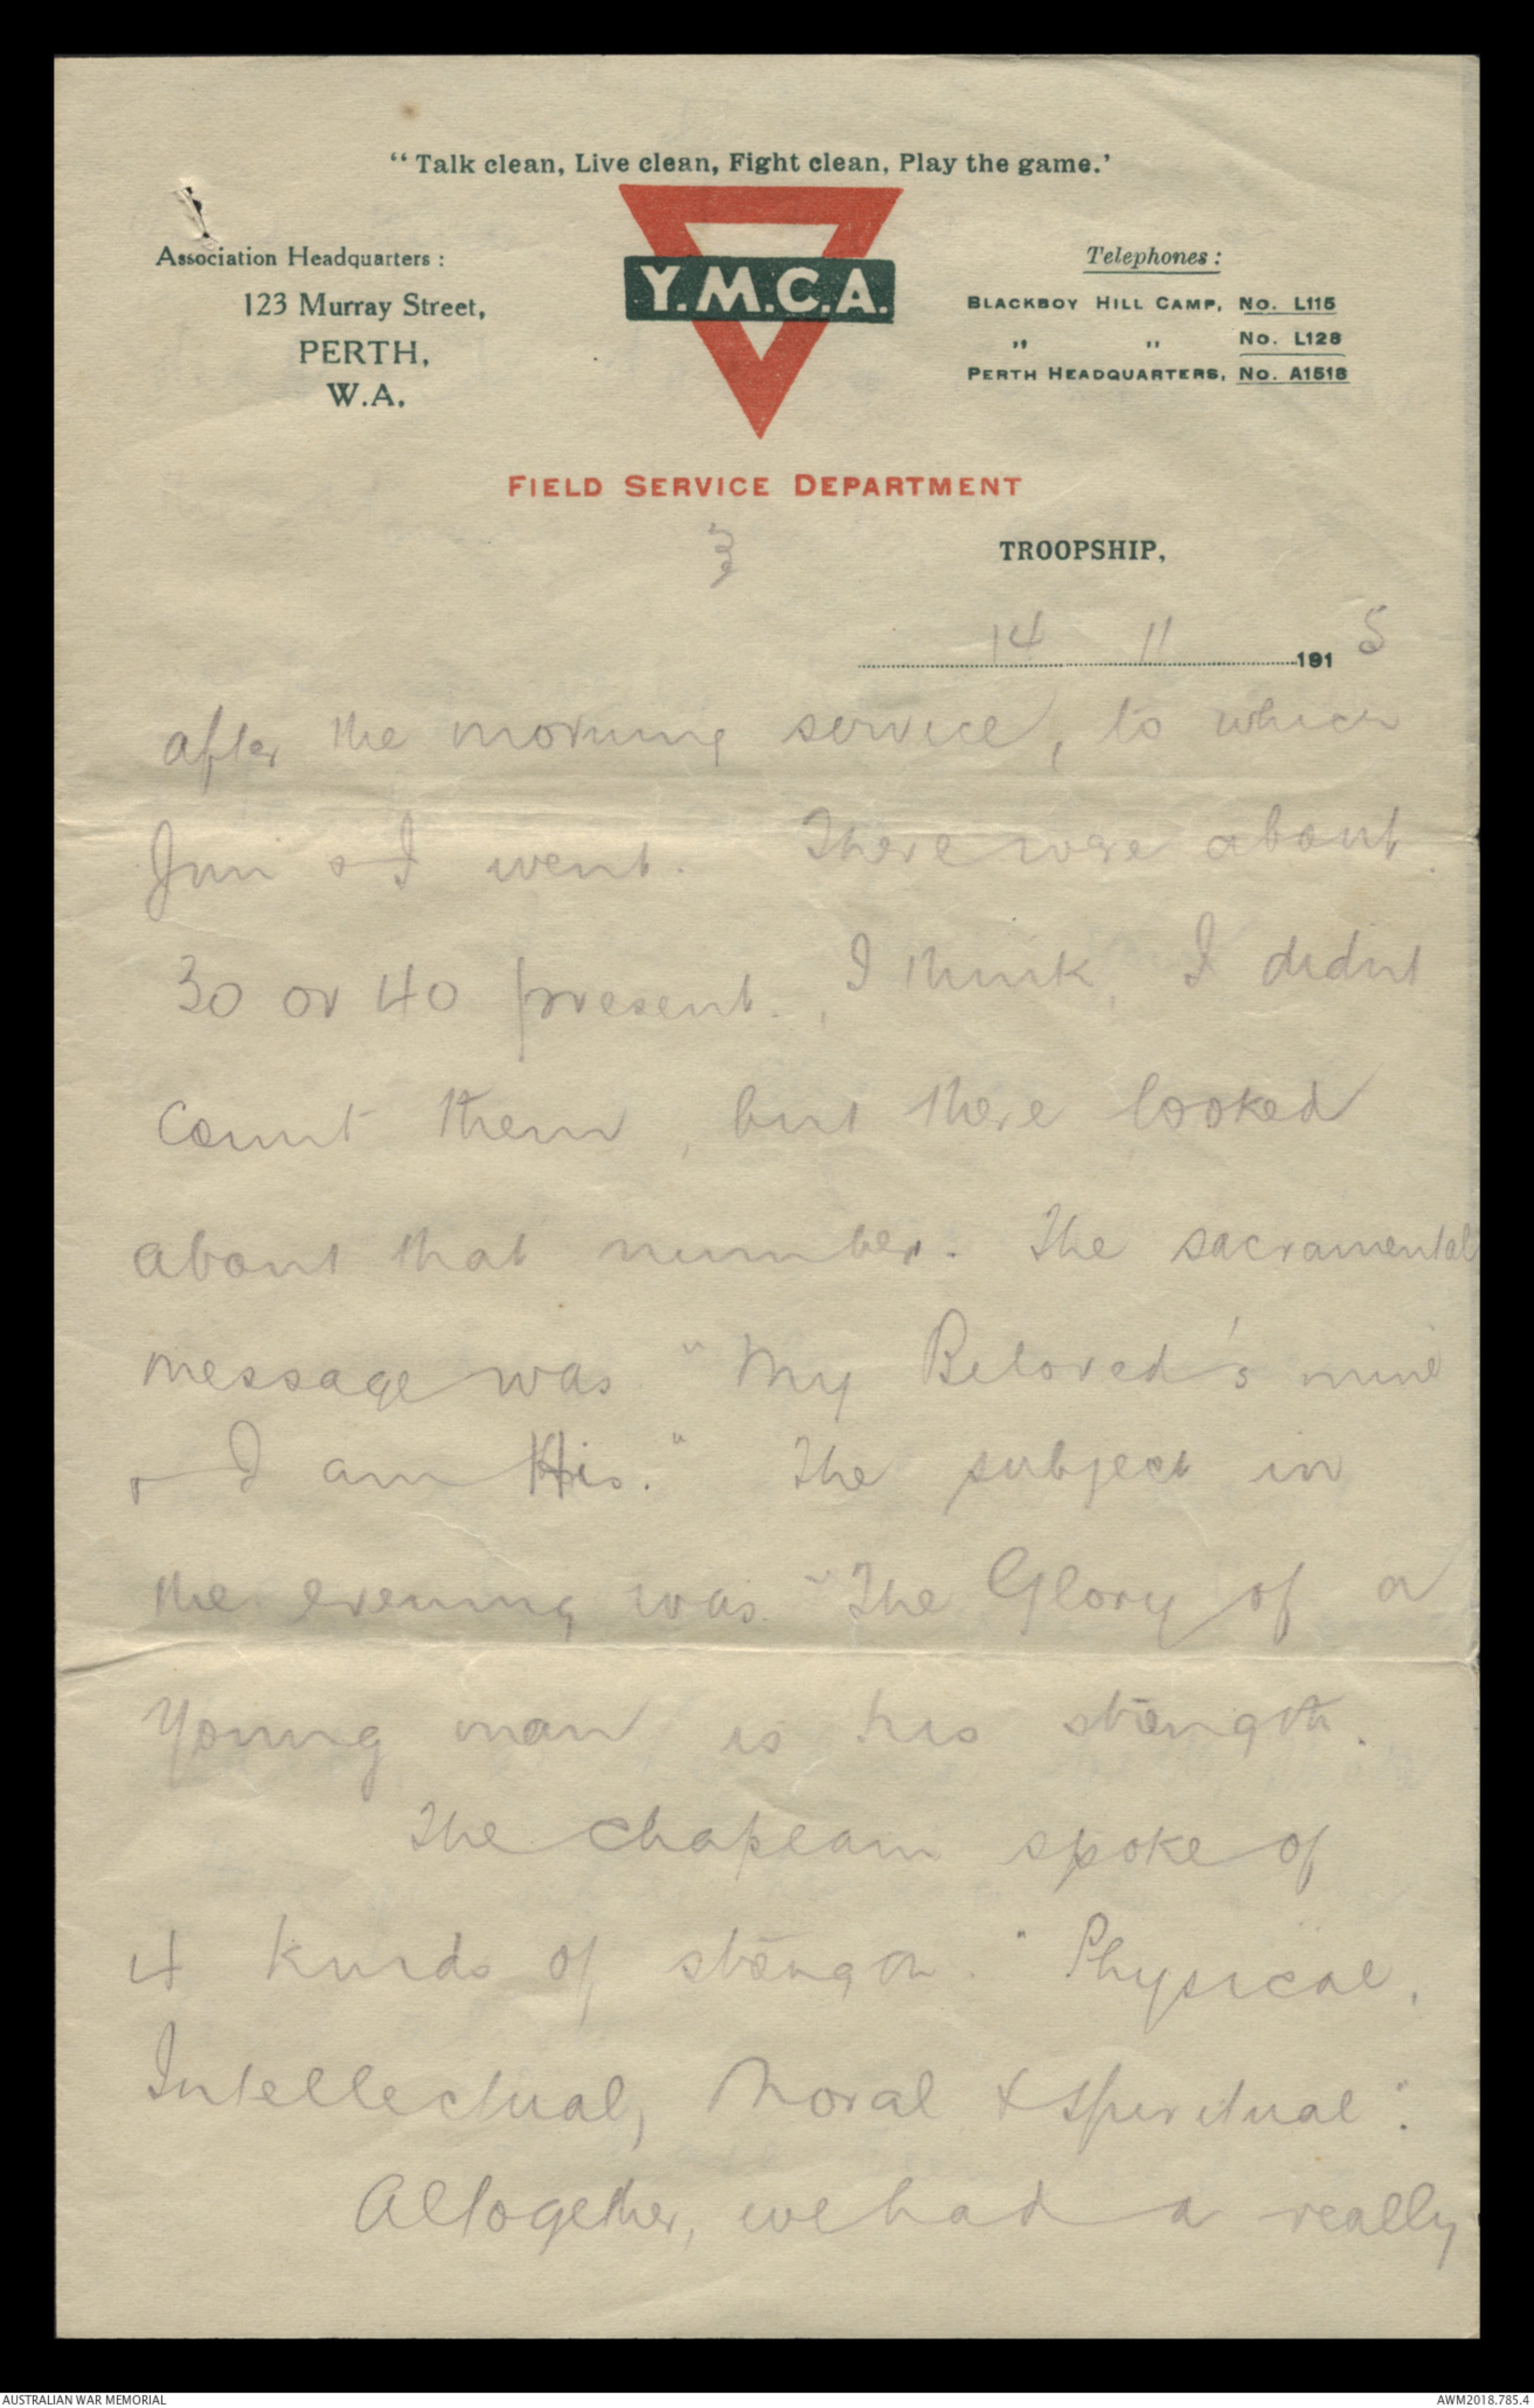 “Talk clean, Live clean, Fight clean, Play the game.’
Association Headquarters :
123 Murray Street,
PERTH,
W.A.
Y.M.C.A.
Telephones :
BLACKBOY HILL CAMP, No. L115
" " No. L128
PERTH HEADQUARTERS, No. A1518
FIELD SERVICE DEPARTMENT
3
TROOPSHIP,
14 11 1915
after the morning service, to which
Jim & I went. There were about
30 or 40 present., I think, I didnt
count them, but there looked
about that number. The sacramental
message was "My Beloved's mine
& I am His." The subject in
the evening was "The Glory of a
Young man is his strength.
The chaplain spoke of
4 kinds of strength. "Physical,
Intellectual, Moral & spiritual".
Altogether, we had a really
AUSTRALIAN WAR MEMORIAL
AWM2018.785.4